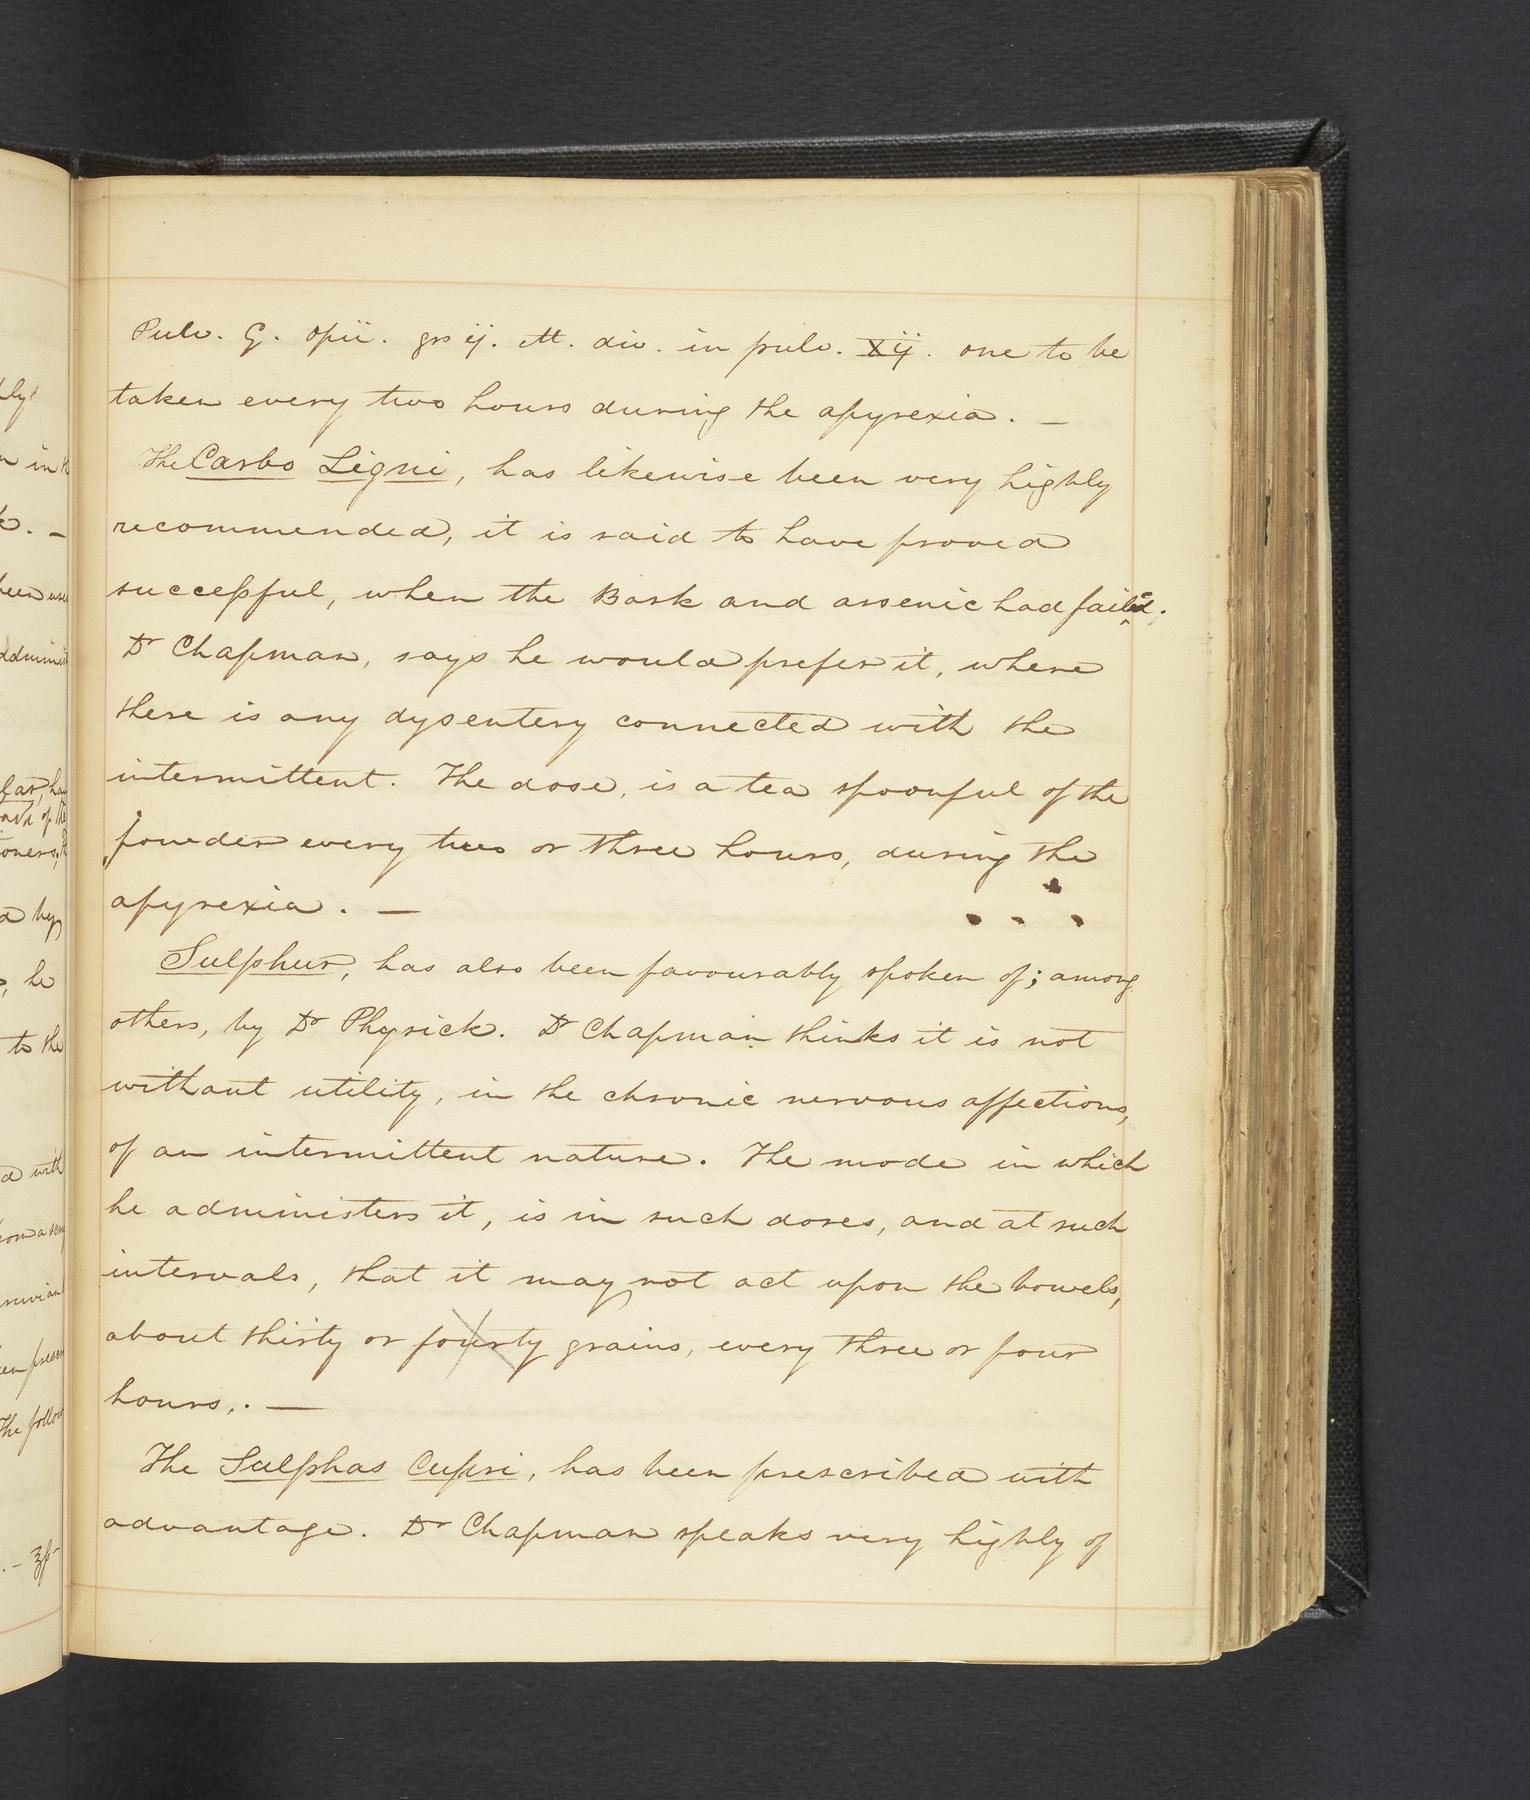 Pulv. G. opii. grs ij. M. div. in pulv. Xij. one to be
taken every two hours during the apyrexia. —
The Carbo Ligni, has likewise been very highly
recommended, it is said to have proved
successful, when the Bark and arsenic had failed.
Dr Chapman, says he would prefer it, where
there is any dysentery connected with the
intermittent. The dose, is a tea spoonful of the
powder every two or three hours, during the
apyrexia. —
Sulphur, has also been favourably spoken of; among
others, by Dr Physick. Dr Chapman thinks it is not
without utility, in the chronic nervous affections,
of an intermittent nature. The mode in which
he administers it, is in such doses, and at such
intervals, that it may not act upon the bowels,
about thirty or fourty grains, every three or four
hours,. —
The Sulphas Cupri, has been prescribed with
advantage. Dr Chapman speaks very highly of